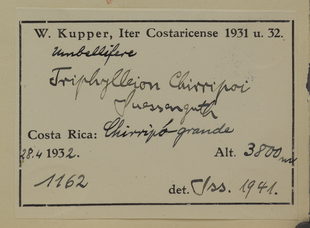 W. Kupper, Iter Costaricense 1931 u. 32.
Umbellifere
Triphylleion Chirripoi
Suessenguth
Costa Rica: Chirripó grande
28.4 1932. Alt. 3800 m
1162 det. Sss. 1941.